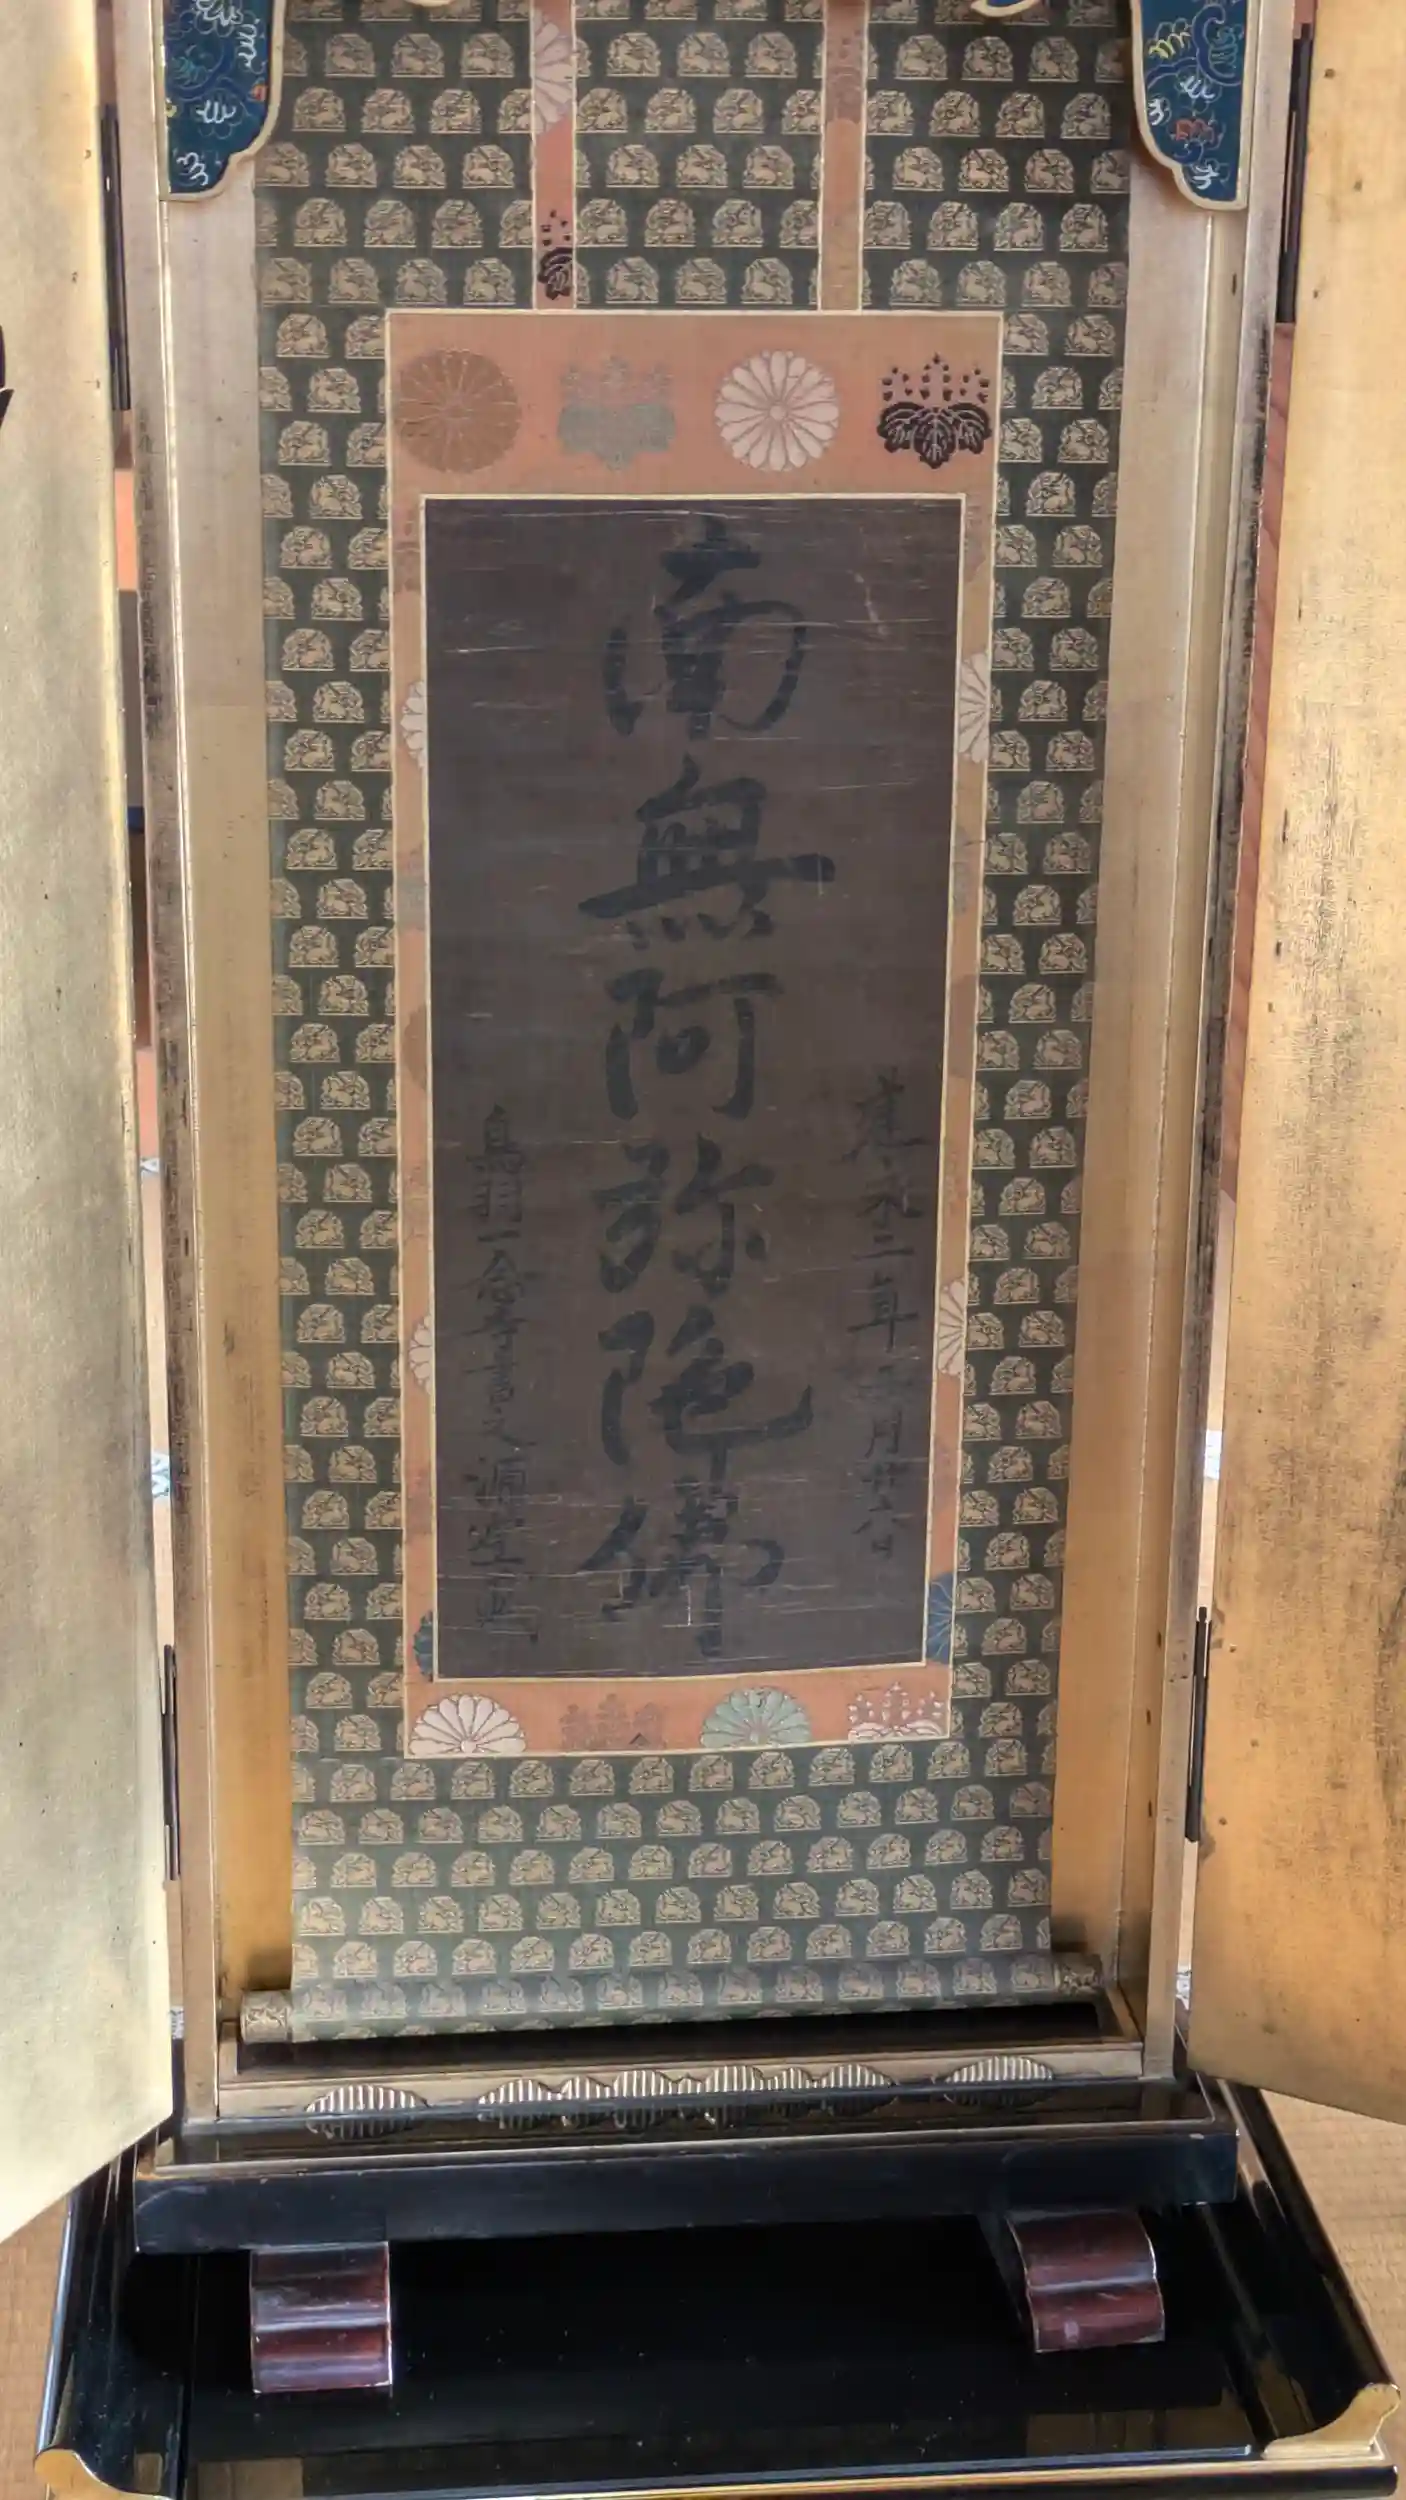 建永二年月廿六日
南無阿弥陀佛
鳥羽一念寺書之源空